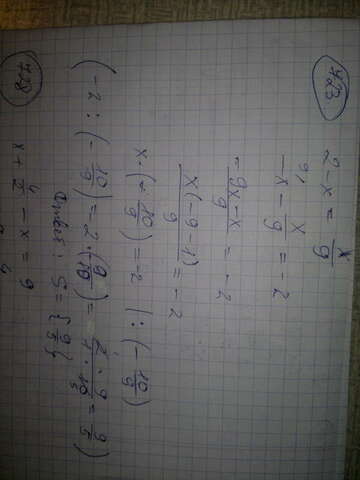 423.
2 - x = x/9
-x - x/9 = -2
(-9x - x)/9 = -2
x(-9 - 1)/9 = -2
x · (-10/9) = -2 | : (-10/9)
(-2 : (-10/9) = 2 · (9/10) = 2 · 9/1 · 10 = 9/5)
Ответ : S = {9/5}
428